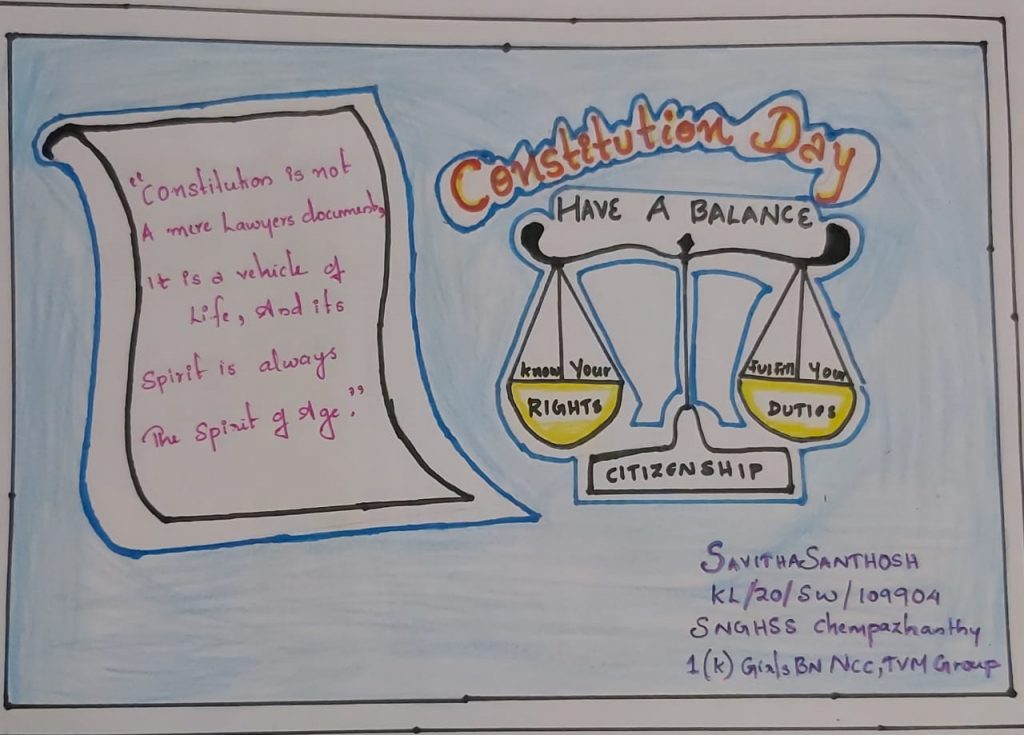 "Constitution is not
A mere Lawyers document,
It is a vehicle of
Life, And its
Spirit is always
The Spirit of Age."
Constitution Day
HAVE A BALANCE
Know Your
RIGHTS
Fulfill Your
DUTIES
CITIZENSHIP
SAVITHA SANTHOSH
KL/20/SW/109904
SNGHSS Chempazhanthy
1(K) Girls BN NCC, TVM Group